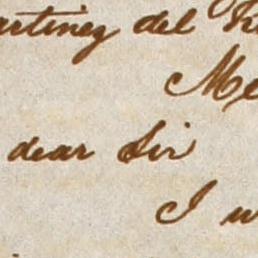 artinez del R
Me
dear Sir
I w